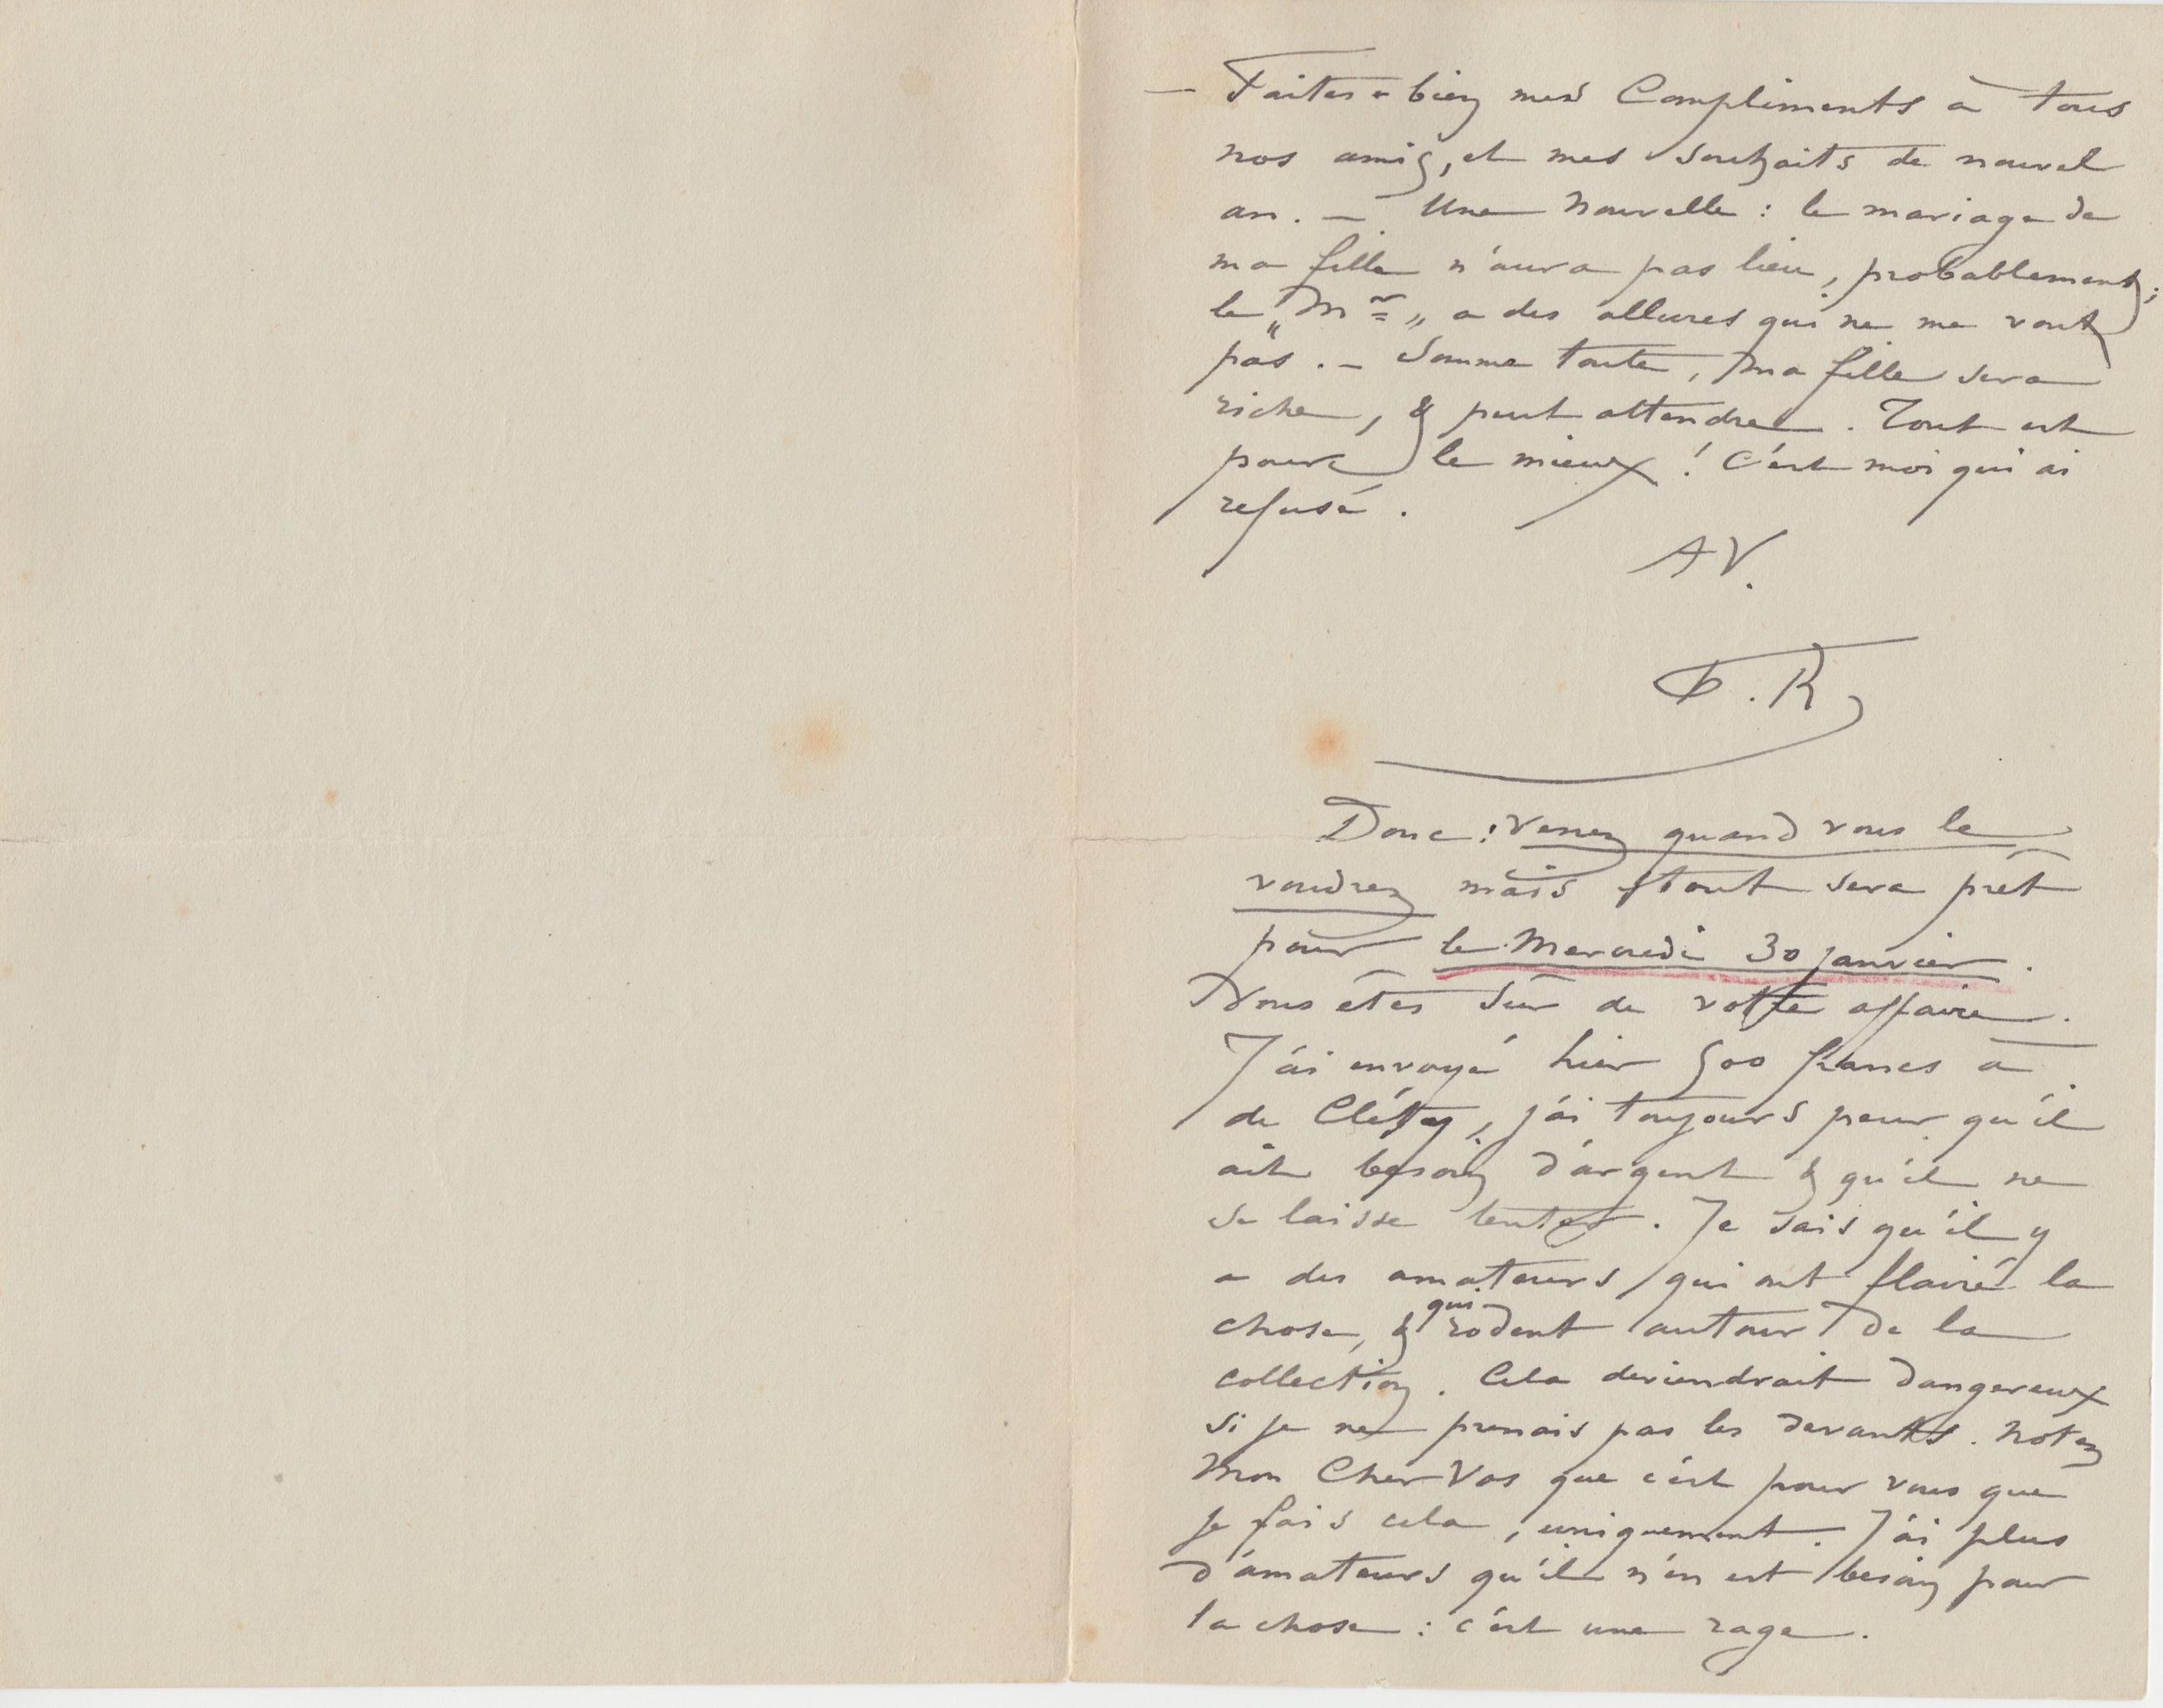 — Faites-bien mes Compliments à tous
nos amis, et mes souhaits de nouvel
an. — Une Nouvelle : le mariage de
ma fille n'aura pas lieu, probablement ;
le „Mr„ a des allures qui ne me vont
pas. — Somme toute, ma fille sera
riche, & peut attendre. Tout est
pour le mieux ! C'est moi qui ai
refusé.
AV.
F. R
Donc : venez quand vous le
voudrez mais tout sera prêt
pour le Mercredi 30 janvier.
Vous êtes sûr de votre affaire.
J'ai envoyé hier 500 francs à
de Cléty, j'ai toujours peur qu'il
ait besoin d'argent & qu'il ne
se laisse tenter. Je sais qu'il y
a des amateurs qui ont flairé la
chose, & qui rodent autour de la
collection. Cela deviendrait dangereux
si je ne prenais pas les devants. Notez
Mon Cher Vos que c'est pour vous que
je fais cela, uniquement. J'ai plus
d'amateurs qu'il n'en est besoin pour
la chose : c'est une rage.